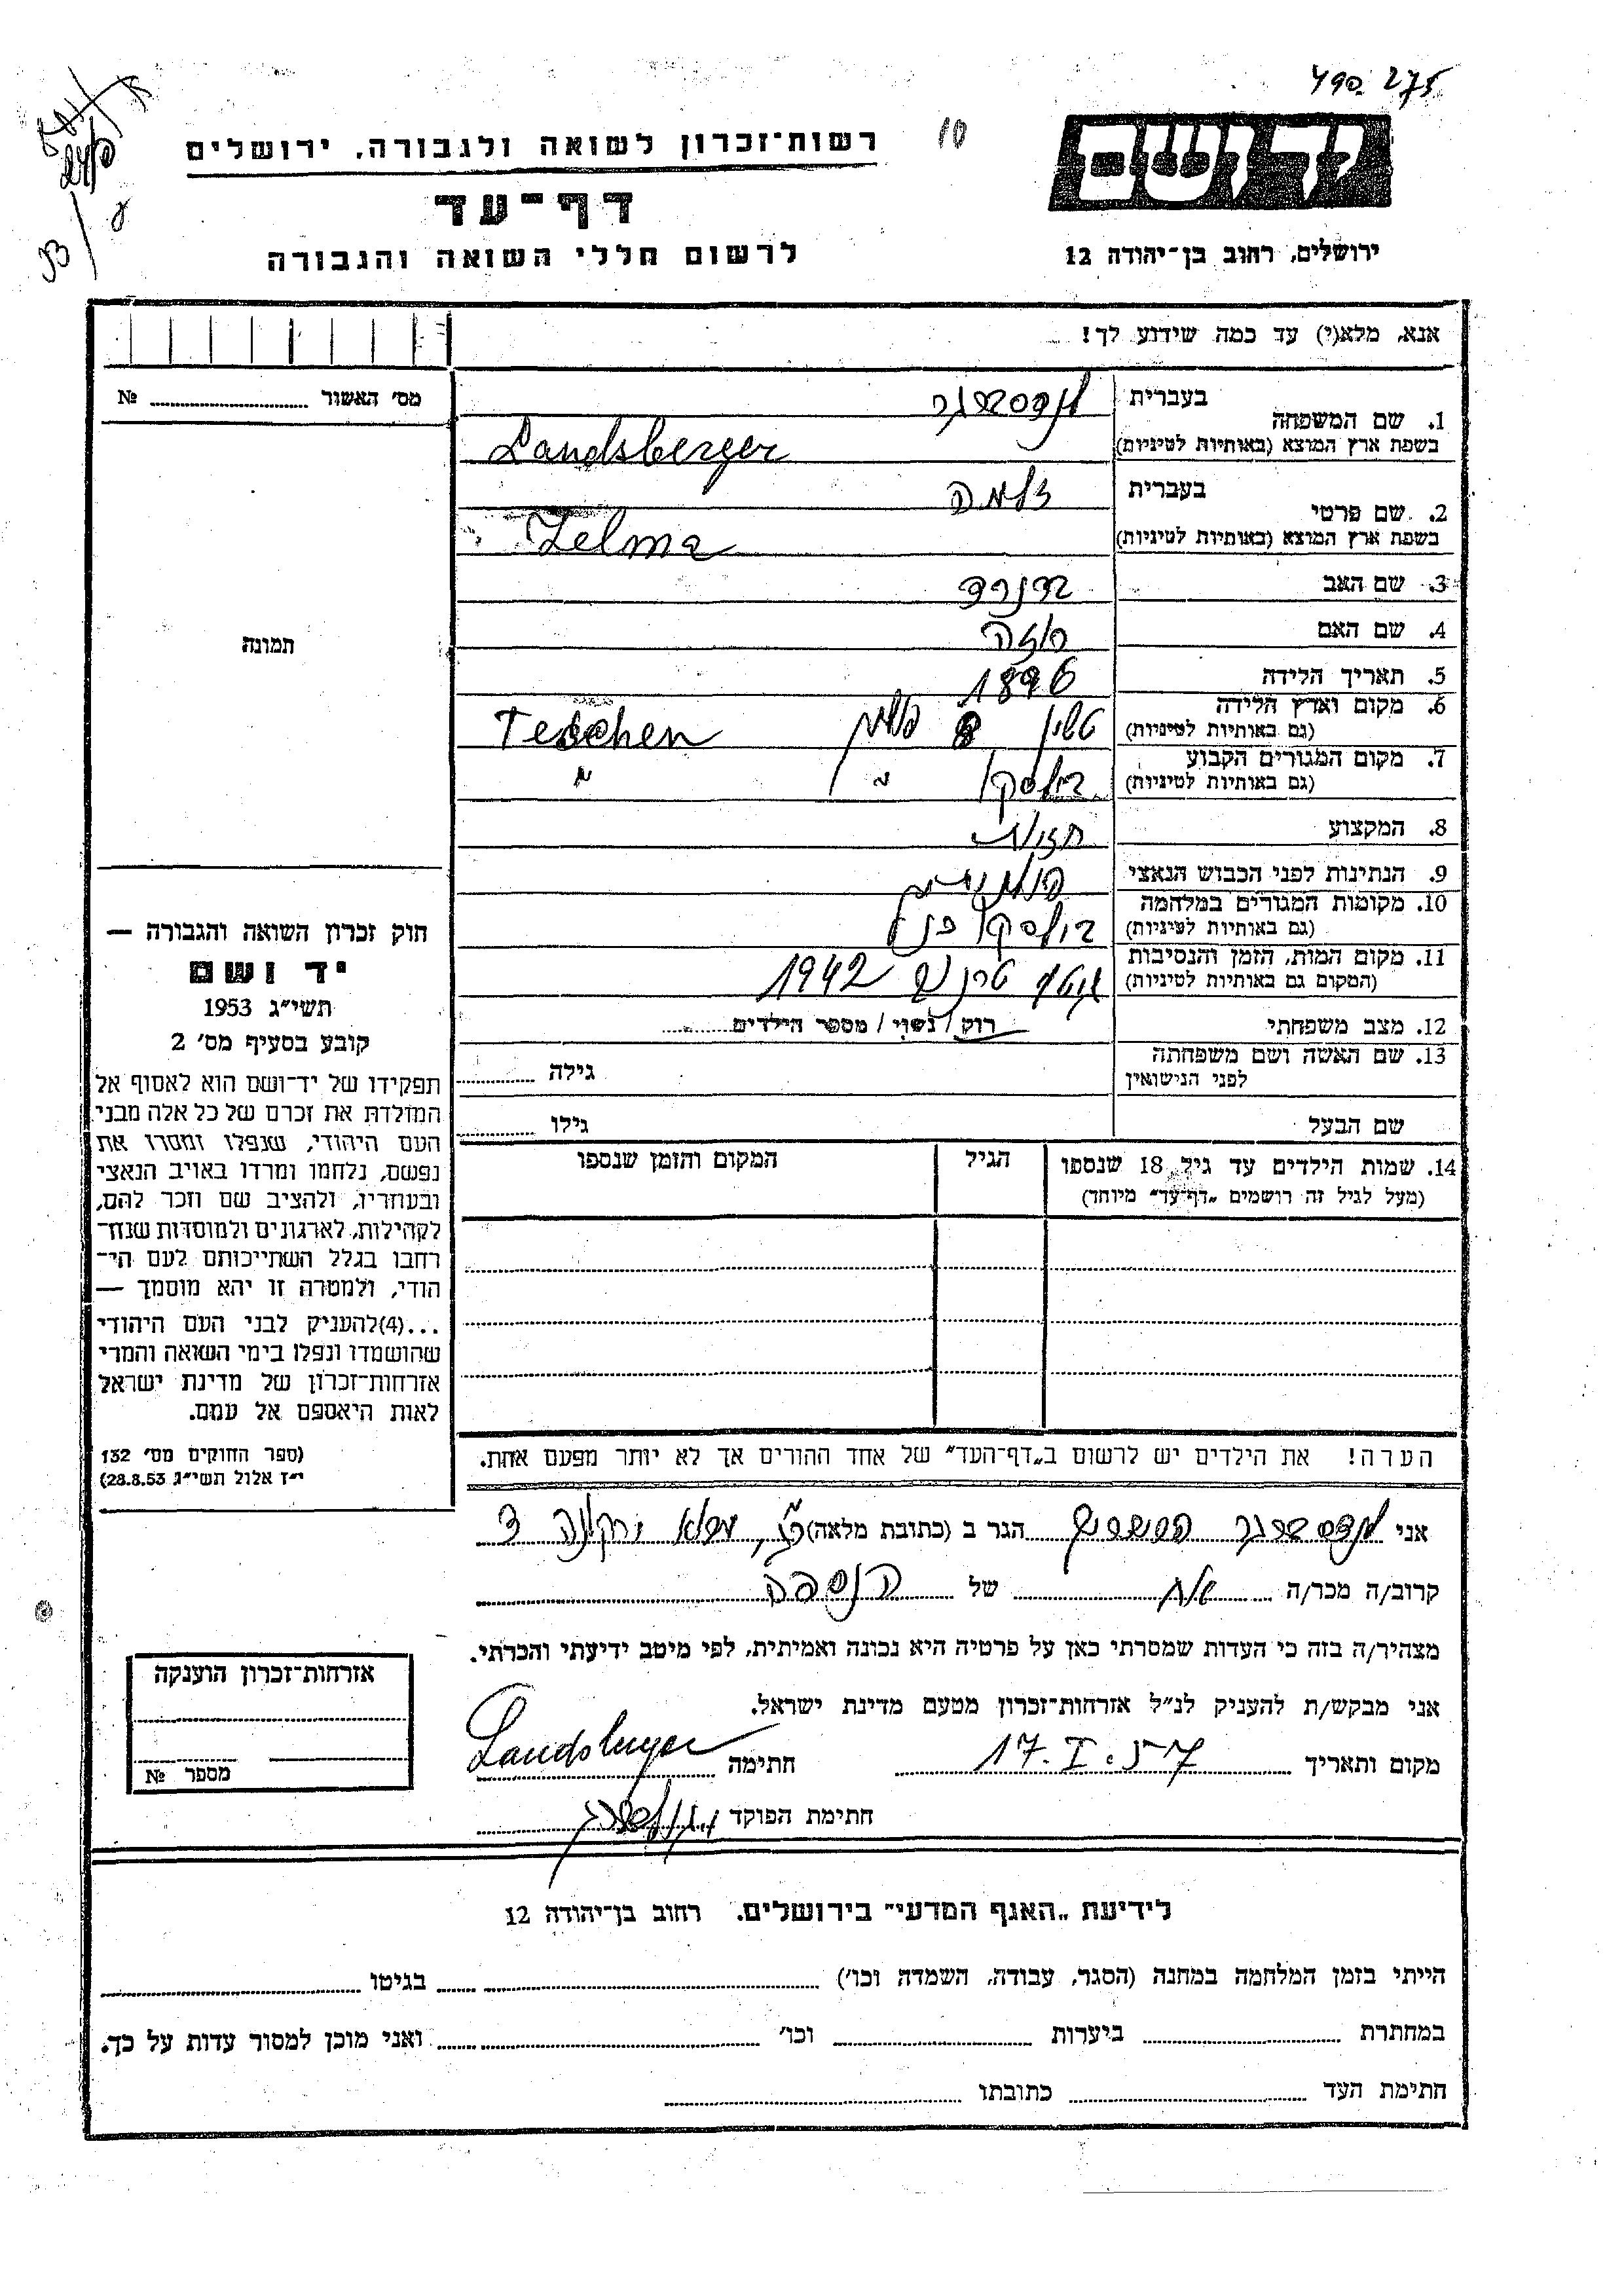 490.275
10
ידושם
רשות־זכרון לשואה ולגבורה, ירושלים
דף־עד
לרשום חללי השואה והגבורה
ירושלים, רחוב בן־יהודה 12
אנא, מלא(י) עד כמה שידוע לך!
מס׳ האשור № 
1. שם המשפחה
בעברית לנדסברגר
בשפת ארץ המוצא (באותיות לטיניות) Landsberger
2. שם פרטי
בעברית זלמה
בשפת ארץ המוצא (באותיות לטיניות) Zelma
3. שם האב ברנרד
4. שם האם רוזה
5. תאריך הלידה 1896
6. מקום וארץ הלידה (גם באותיות לטיניות) טשין פולין Teschen
7. מקום המגורים הקבוע (גם באותיות לטיניות) בילסקו " "
8. המקצוע
9. הנתינות לפני הכבוש הנאצי
10. מקומות המגורים במלחמה (גם באותיות לטיניות) בילסקו
11. מקום המות, הזמן והנסיבות (המקום גם באותיות לטיניות) 1942
12. מצב משפחתי רוק / נשוי / מספר הילדים
13. שם האשה ושם משפחתה לפני הנישואין גילה
שם הבעל גילו
14. שמות הילדים עד גיל 18 שנספו הגיל המקום והזמן שנספו
(מעל לגיל זה רושמים „דף־עד״ מיוחד)
הערה! את הילדים יש לרשום ב„דף־העד״ של אחד ההורים אך לא יותר מפעם אחת.
תמונה
חוק זכרון השואה והגבורה —
יד ושם
תשי״ג 1953
קובע בסעיף מס׳ 2
תפקידו של יד־ושם הוא לאסוף אל
המולדת את זכרם של כל אלה מבני
העם היהודי, שנפלו ומסרו את
נפשם, נלחמו ומרדו באויב הנאצי
ובעוזריו, ולהציב שם וזכר להם,
לקהילות, לארגונים ולמוסדות שנח־
רבו בגלל השתייכותם לעם הי־
הודי, ולמטרה זו יהא מוסמך —
...(4)להעניק לבני העם היהודי
שהושמדו ונפלו בימי השואה והמרי
אזרחות־זכרון של מדינת ישראל
לאות היאספם אל עמם.
(ספר החוקים מס׳ 132
י״ז אלול תשי״ג 28.8.53)
אני לנדסברגר הגר ב (כתובת מלאה)
קרוב/ה מכר/ה של הנספה
מצהיר/ה בזה כי העדות שמסרתי כאן על פרטיה היא נכונה ואמיתית, לפי מיטב ידיעתי והכרתי.
אני מבקש/ת להעניק לנ״ל אזרחות־זכרון מטעם מדינת ישראל.
מקום ותאריך 17.I.57 חתימה Landsberger
חתימת הפוקד
אזרחות־זכרון הוענקה
מספר №
לידיעת „האגף המדעי״ בירושלים. רחוב בן־יהודה 12
הייתי בזמן המלחמה במחנה (הסגר, עבודה, השמדה וכו׳) בגיטו
במחתרת ביערות וכו׳ ואני מוכן למסור עדות על כך.
חתימת העד כתובתו